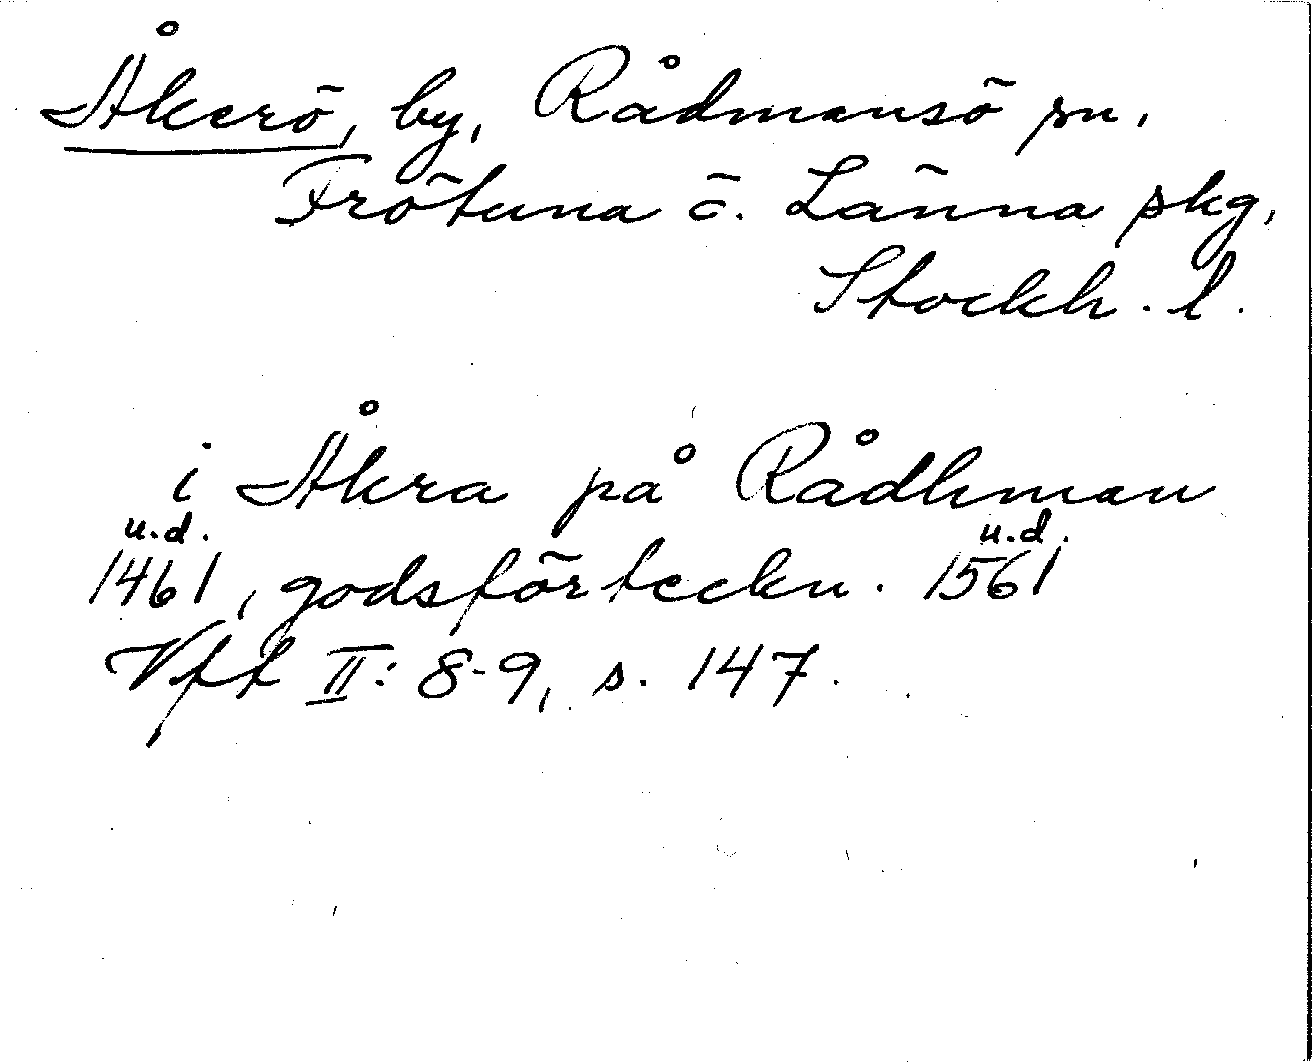 Åkerö, by, Rådmansö sn.
Frötuna o. Länna skg,
Stockh. l.
i Åkra på Rådhman
u.d. u.d.
1461, godsförteckn. 1561
Vff II: 8-9, s. 147.